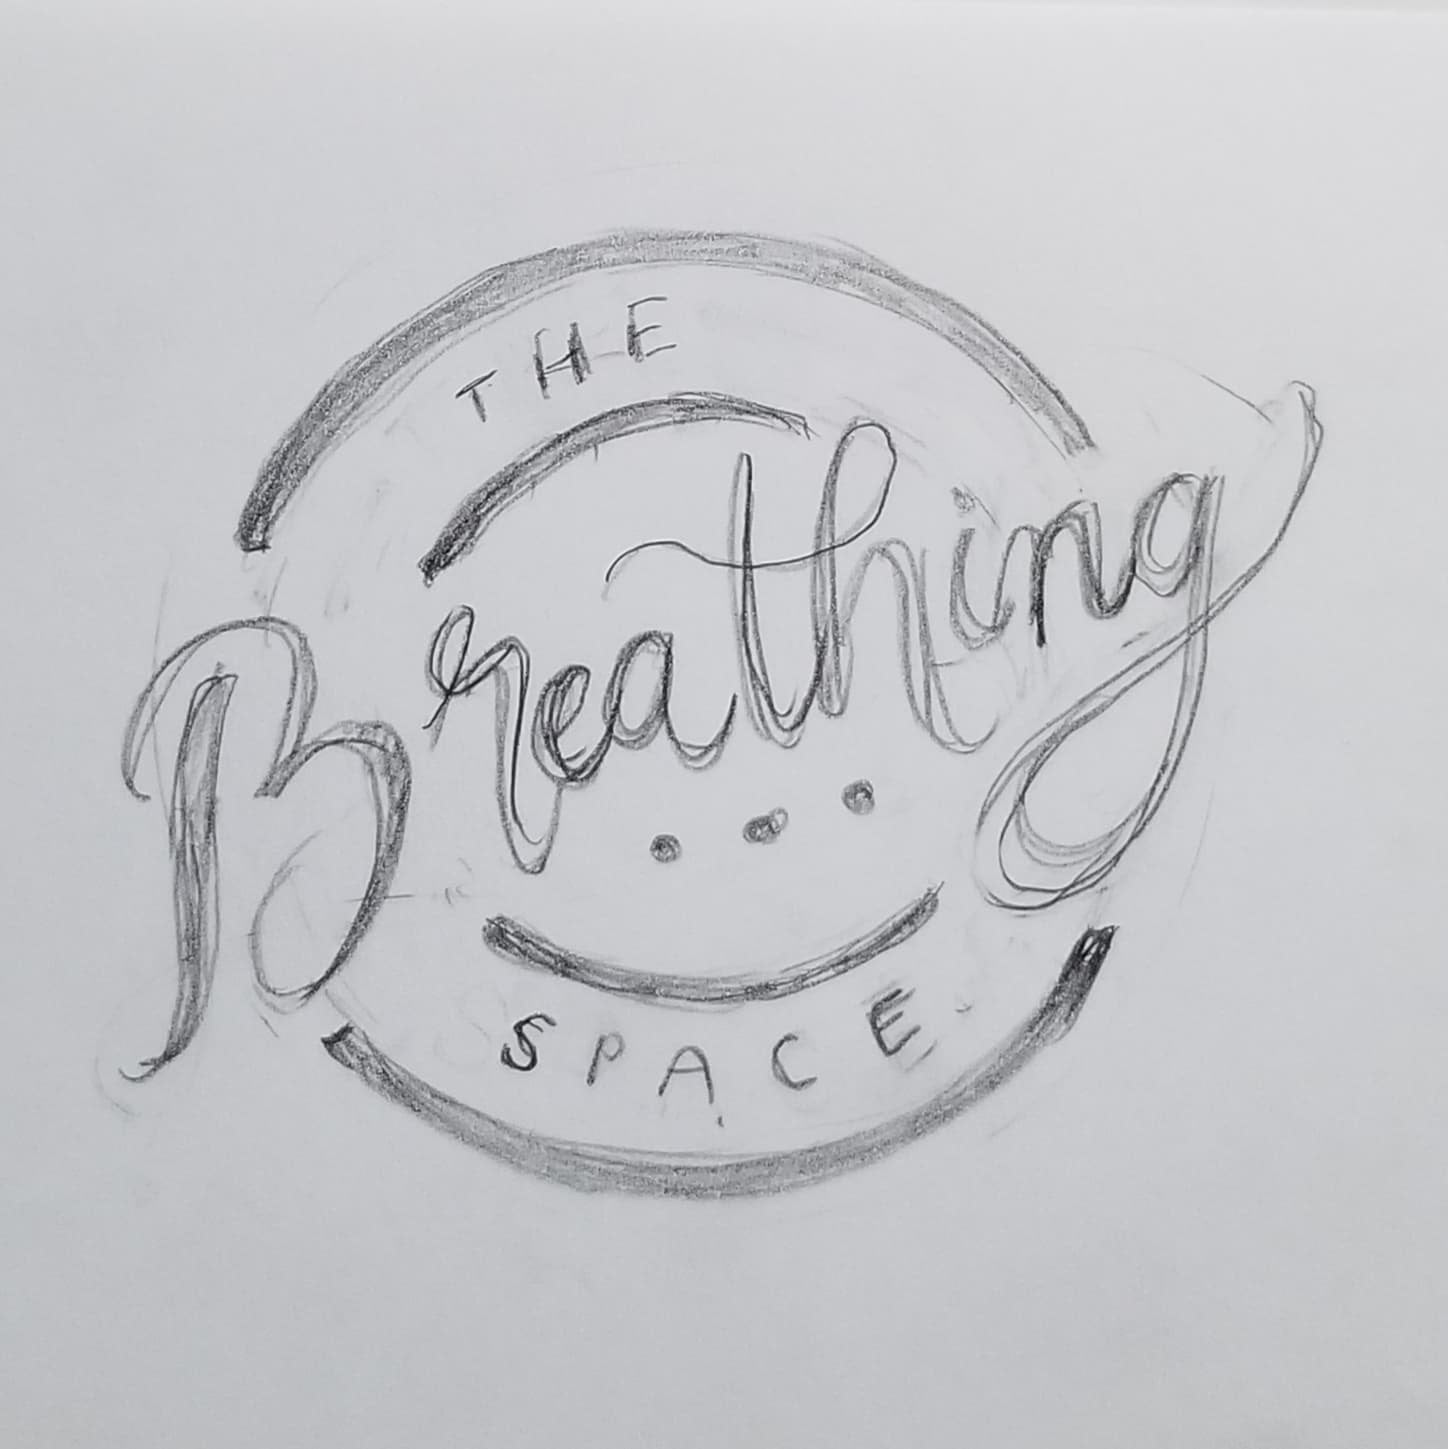 THE
Breathing
SPACE